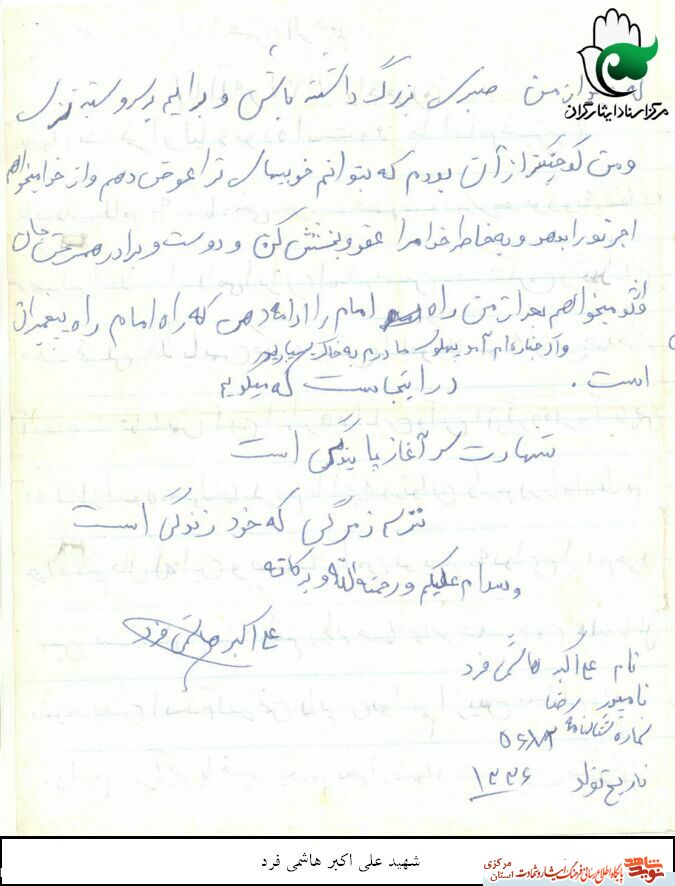 مرکز اسناد ایثارگران
از من صبری بزرگ داشته باش و برایم
و من کوچکتر از آن بودم که بتوانم خوبیهای ترا عوض دهم و از خدا میخواهم
اجر تو را بدهد و به خاطر خدا مرا عفو و بخشش کن و دوست و برادر همسرختن جان
میخواهم بعد از من راه امام را ادامه دهی که راه امام راه پیغمبران
و اگر جنازه ام آمد پهلوی مادرم به خاک بسپارید
است . در اینجاست که میگویم
شهادت سر آغاز پایندگی است
نترسم ز مرگی که خود زندگی است
وسلام علیکم و رحمته الله و برکاته
علی اکبر هاشمی فرد
نام علی اکبر هاشمی فرد
نام پدر رضا
شماره شناسنامه
تاریخ تولد ۱۳۳۶
شهید علی اکبر هاشمی فرد
نوید شاهد
پایگاه اطلاع رسانی فرهنگ ایثار و شهادت
استان مرکزی